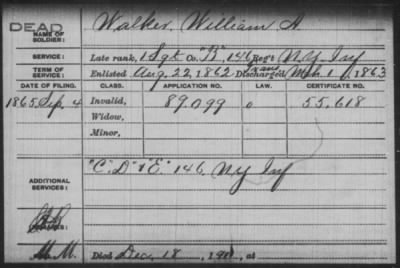 DEAD
NAME OF SOLDIER: Walker, William H.
SERVICE: Late rank, 1 Sgt Co. "B" 146 Reg't N.Y. Inf
TERM OF SERVICE: Enlisted Aug. 22, 1862 Discharged Mch. 1, 1863
DATE OF FILING. CLASS. APPLICATION NO. LAW. CERTIFICATE NO.
1865 Sep. 4 Invalid, 89,099 0 55,618
Widow,
Minor,
ADDITIONAL SERVICES: "C." D" & "E." 146, N.Y. Inf
M.M. Died Dec. 18, 1911, at